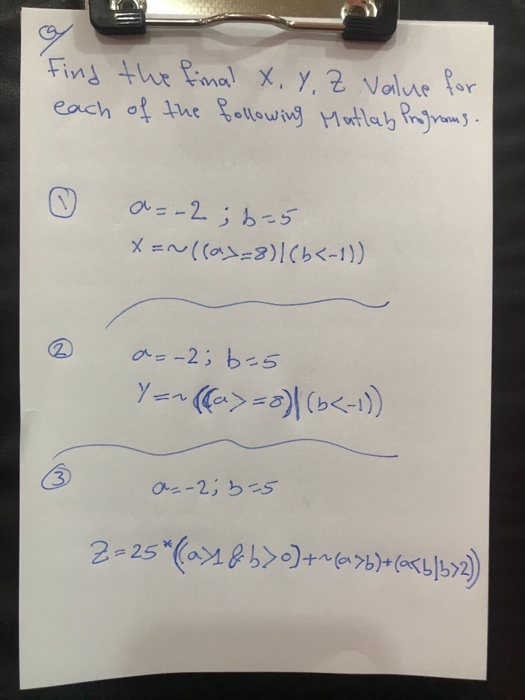 Q
Find the final X, Y, Z Value for
each of the following Matlab Programs.
①
a=-2 ; b=5
X=~((a>=8)|(b<-1))
②
a=-2; b=5
Y=~((a>=8)|(b<-1))
③
a=-2; b=5
Z=25*((a>1&b>0)+~(a>b)+(a<b|b>2))